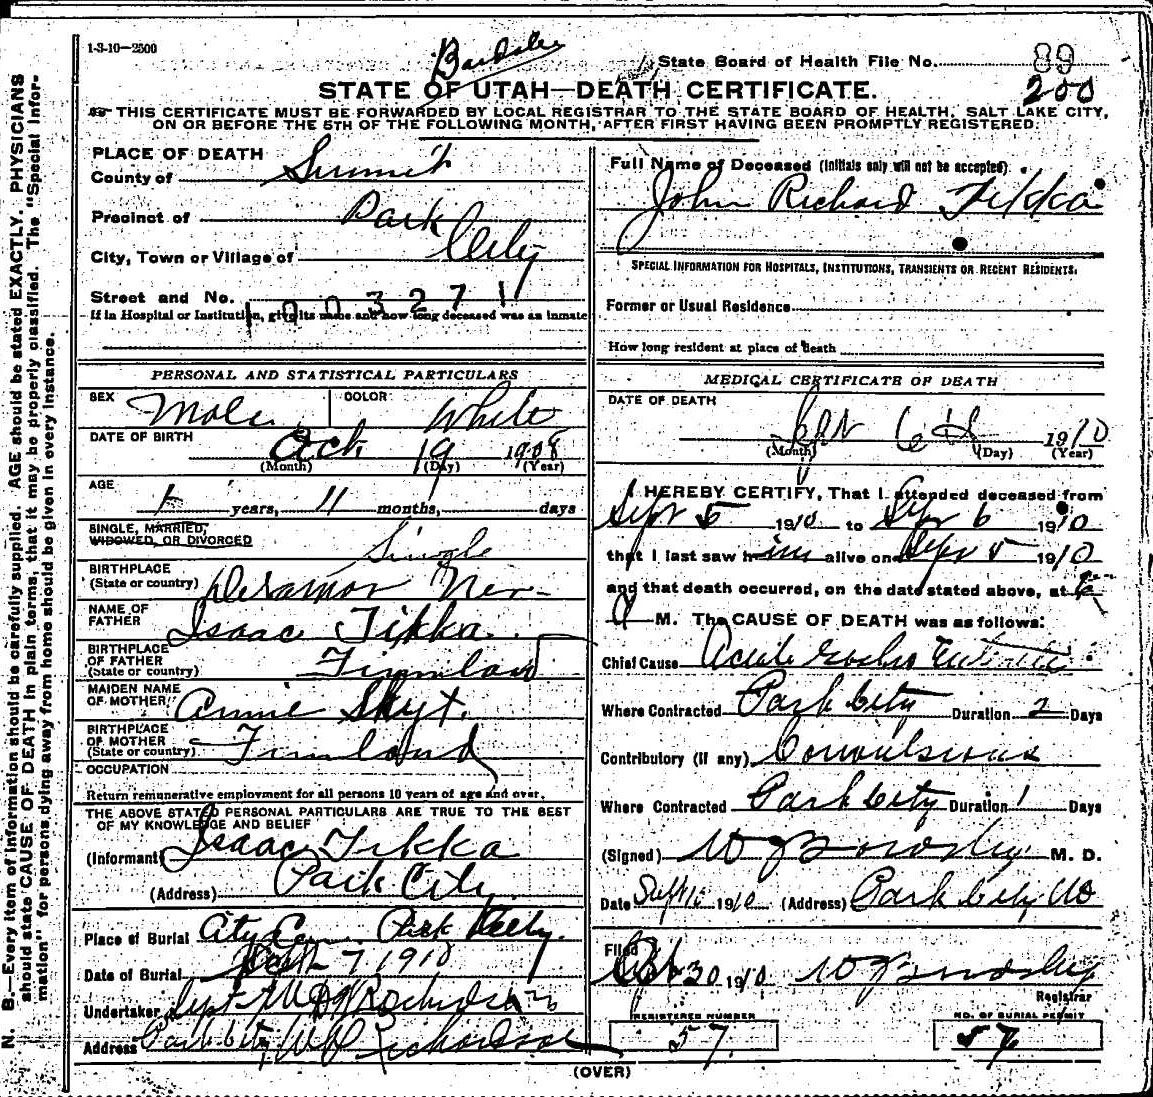 1-3-10—2500
Bardsley
State Board of Health File No. 89
200
STATE OF UTAH—DEATH CERTIFICATE.
THIS CERTIFICATE MUST BE FORWARDED BY LOCAL REGISTRAR TO THE STATE BOARD OF HEALTH, SALT LAKE CITY,
ON OR BEFORE THE 5TH OF THE FOLLOWING MONTH, AFTER FIRST HAVING BEEN PROMPTLY REGISTERED.
N. B.—Every item of information should be carefully supplied. AGE should be stated EXACTLY. PHYSICIANS
should state CAUSE OF DEATH in plain terms, that it may be properly classified. The "Special Infor-
mation" for persons dying away from home should be given in every instance.
PLACE OF DEATH
County of Summit
Precinct of Park
City, Town or Village of City
Street and No.
1003271
If in Hospital or Institution, give its name and how long deceased was an inmate
PERSONAL AND STATISTICAL PARTICULARS
SEX Male COLOR White
DATE OF BIRTH Oct 19 1908
(Month) (Day) (Year)
AGE
1 years, 11 months, days
SINGLE, MARRIED, WIDOWED, OR DIVORCED Single
BIRTHPLACE (State or country) Nev
NAME OF FATHER Isaac Tikka
BIRTHPLACE OF FATHER (State or country) Finnland
MAIDEN NAME OF MOTHER Annie Skyt.
BIRTHPLACE OF MOTHER (State or country) Finnland
OCCUPATION
Return remunerative employment for all persons 10 years of age and over.
THE ABOVE STATED PERSONAL PARTICULARS ARE TRUE TO THE BEST
OF MY KNOWLEDGE AND BELIEF
(Informant) Isaac Tikka
(Address) Park City
Place of Burial City Cem. Park City.
Date of Burial Sept 7 1910
Undertaker Richardson
Address Park City, Richardson
Full Name of Deceased (Initials only will not be accepted).
John Richard Tikka
SPECIAL INFORMATION FOR HOSPITALS, INSTITUTIONS, TRANSIENTS OR RECENT RESIDENTS.
Former or Usual Residence
How long resident at place of death
MEDICAL CERTIFICATE OF DEATH
DATE OF DEATH
Sept 6th 1910
(Month) (Day) (Year)
I HEREBY CERTIFY, That I attended deceased from
Sept 5 1910 to Sept 6 1910
that I last saw him alive on Sept 5 1910
and that death occurred, on the date stated above, at
A M. The CAUSE OF DEATH was as follows:
Chief Cause Acute Gastro Enteritis
Where Contracted Park City Duration 2 Days
Contributory (if any) Convulsions
Where Contracted Park City Duration 1 Days
(Signed) W J Bardsley M. D.
Date Sept 1910 (Address) Park City Ut
Filed 30 1910 W J Bardsley
Registrar
REGISTERED NUMBER
57.
NO. OF BURIAL PERMIT
57
(OVER)